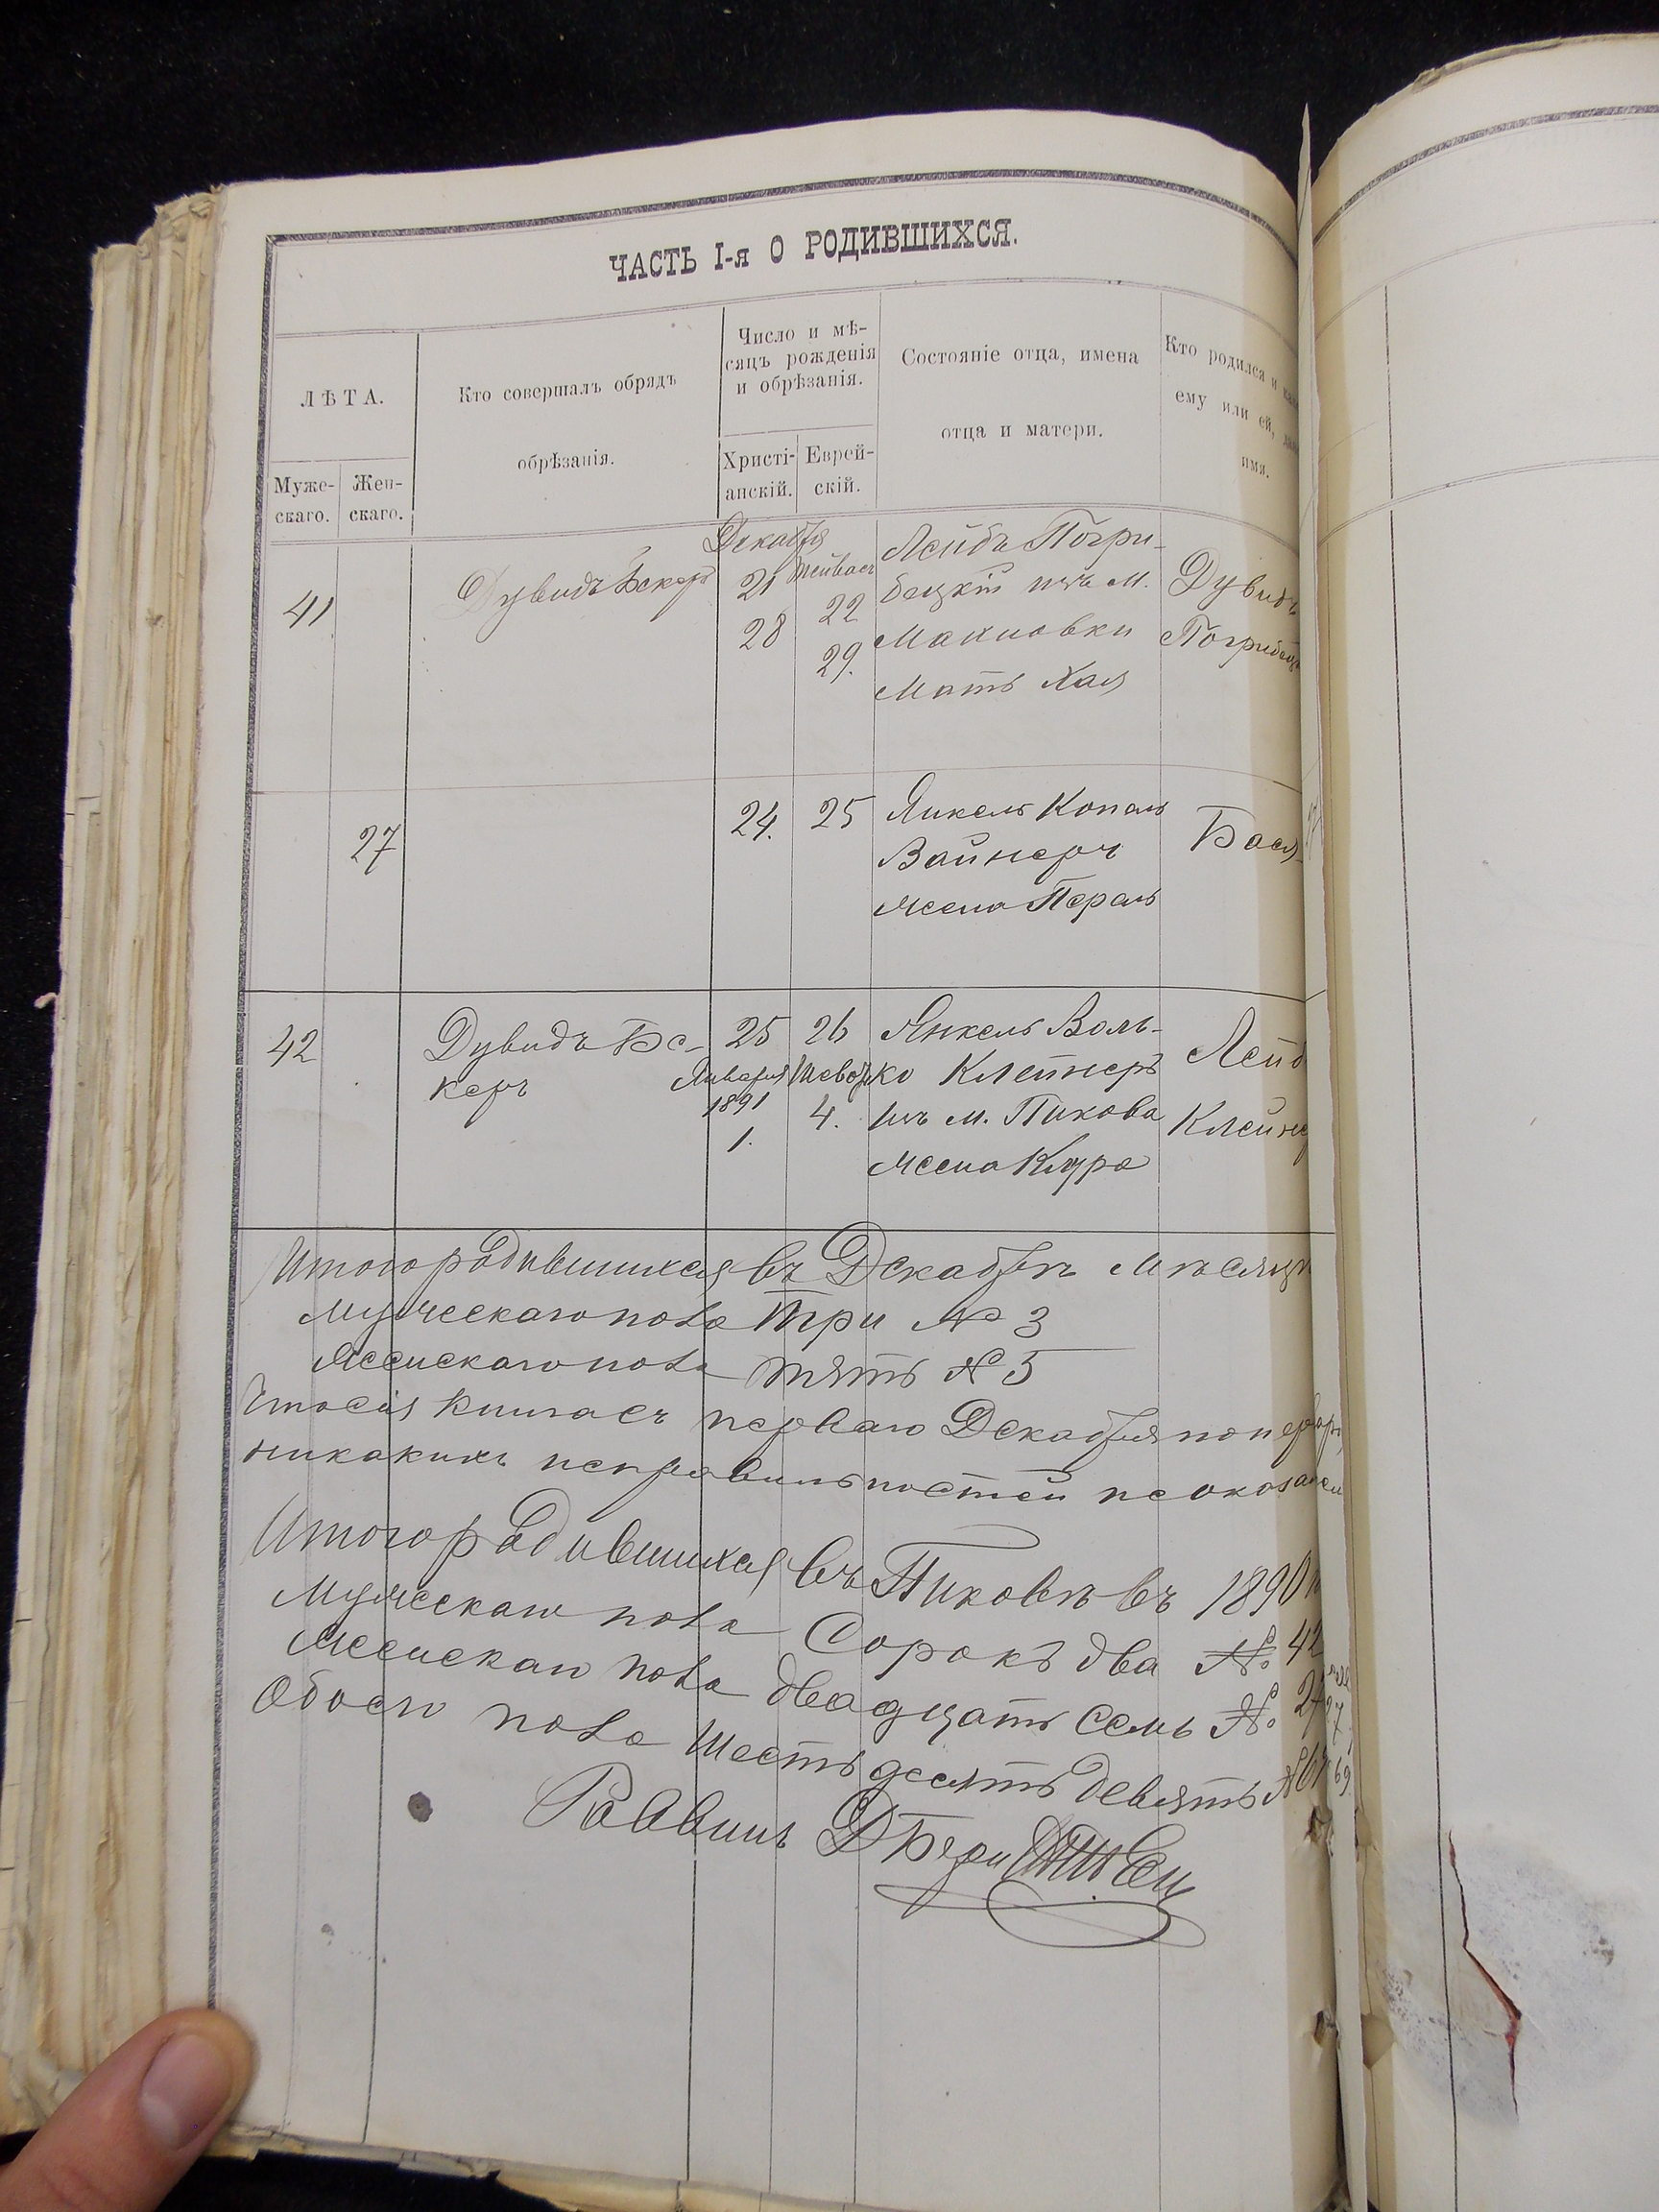 ЧАСТЬ I-я О РОДИВШИХСЯ.
ЛѢТА.
Муже-
скаго.
Жен-
скаго.
Кто совершалъ обрядъ
обрѣзанія.
Число и мѣ-
сяцъ рожденія
и обрѣзанія.
Христі-
анскій.
Еврей-
скій.
Состояніе отца, имена
отца и матери.
Кто родился и
ему или ей,
имя.
41
Дувидъ Бекеръ
Декабря
21
28
Тейвасъ
22
29.
Лейбъ Погри-
бецкій изъ м.
Махновки
Мать Хая
Дувидъ
Погребец
27
24.
25
Янкель Копель
Вайнеръ
жена Перль
Бася
42
Дувидъ Бе-
керъ
25
Января
1891
1.
26
Шеводъ
4.
Янкель Воль-
ко Клейнеръ
изъ м. Пикова
жена Клура
Лейб
Клейнер
Итого родившихся въ Декабрѣ мѣсяцѣ
мужескаго пола три № 3
женскаго пола пять № 5
Что сія книга съ перваго Декабря по
никакихъ неправильностей не оказалось
Итого родившихся въ Пиковѣ въ 1890
мужескаго пола сорокъ два № 42
женскаго пола двадцать семь № 27
Обоего пола шестьдесятъ девять № 69
Раввинъ Д Бери